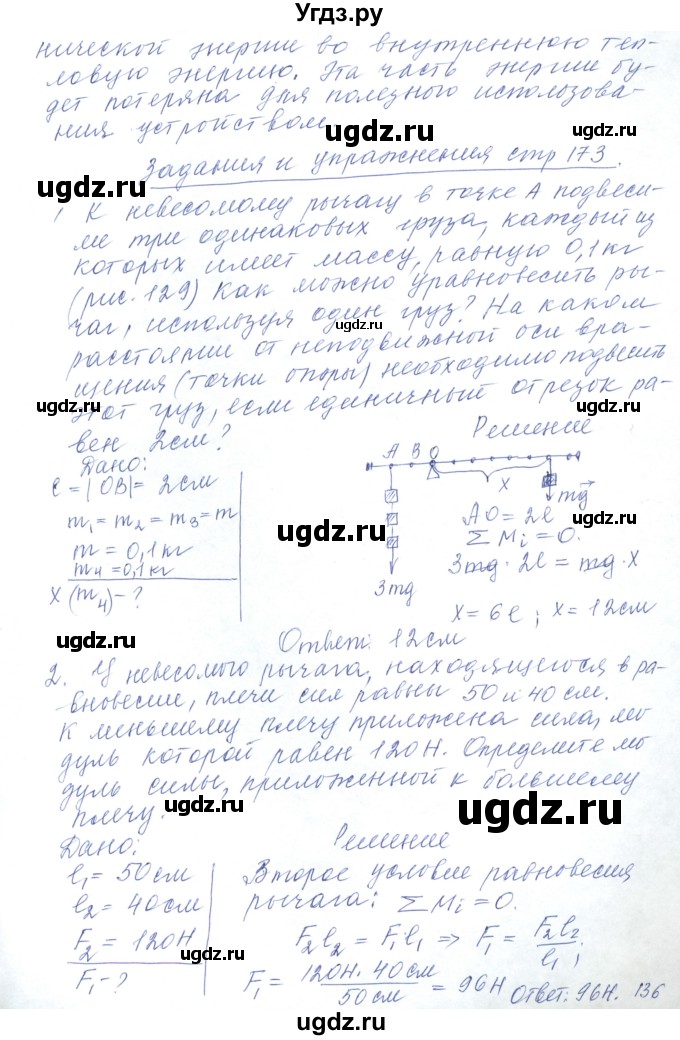 Угдз.ру
нической энергии во внутреннюю теп-
ловую энергию. Эта часть энергии бу-
дет потеряна для полезного использова-
ния устройством
ugdz.ru
ugdz.ru
Задания и упражнения стр 173.
ugdz.ru
1 К невесомому рычагу в точке А подвеси-
ли три одинаковых груза, каждый из
которых имеет массу, равную 0,1 кг
(рис. 129) Как можно уравновесить ры-
чаг, используя один груз? На каком
ugdz.ru
расстоянии от неподвижной оси вра-
щения (точки опоры) необходимо подвесить
ugdz.ru
ugdz.ru
ugdz.ru
этот груз, если единичный отрезок ра-
вен 2 см?
Решение
Дано:
ℓ = |OB| = 2 см
m₁ = m₂ = m₃ = m
m = 0,1 кг
m₄ = 0,1 кг
x (m₄) - ?
A B O
x
mg
3mg
AO = 2ℓ
ΣMᵢ = 0.
3mg · 2ℓ = mg · x
x = 6ℓ ; x = 12 см
ugdz.ru
ugdz.ru
ugdz.ru
ugdz.ru
Ответ: 12 см
2. У невесомого рычага, находящегося в ра-
вновесии, плечи сил равны 50 и 40 см.
К меньшему плечу приложена сила, мо
дуль которой равен 120 Н. Определите мо
дуль силы, приложенной к большему
плечу.
ugdz.ru
ugdz.ru
Дано:
ℓ₁ = 50 см
ℓ₂ = 40 см
F₂ = 120 Н
F₁ - ?
Решение
Второе условие равновесия
рычага: ΣMᵢ = 0.
F₂ℓ₂ = F₁ℓ₁ ⇒ F₁ = F₂ℓ₂ / ℓ₁ ;
F₁ = 120 Н · 40 см / 50 см = 96 Н
Ответ: 96 Н. 136
ugdz.ru
ugdz.ru
ugdz.ru
ugdz.ru